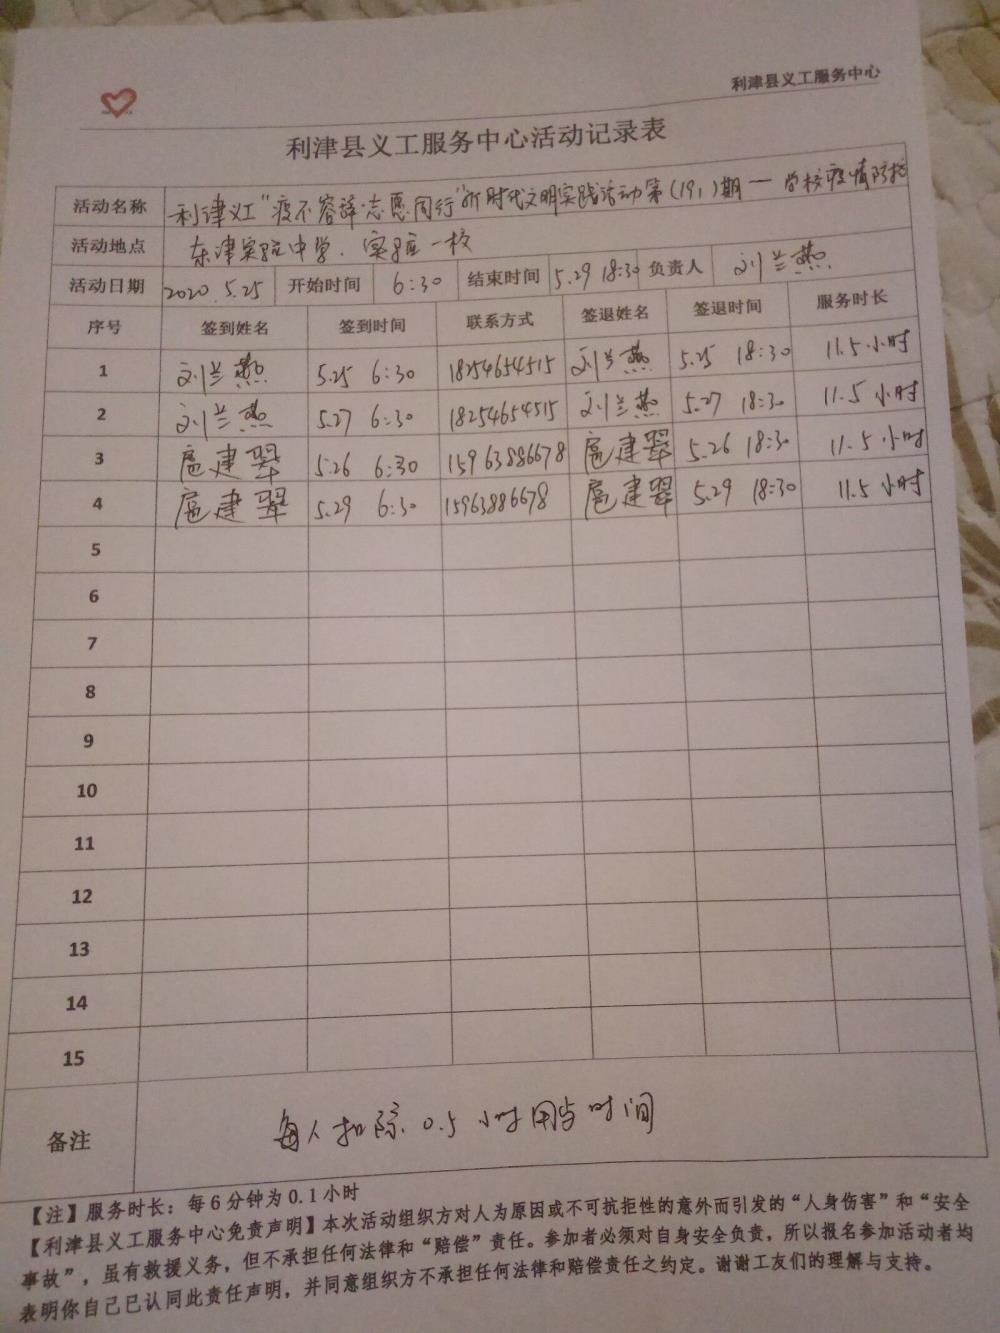 利津县义工服务中心
利津县义工服务中心活动记录表
活动名称 利津义工“疫不容辞 志愿同行”新时代文明实践活动第（191）期—学校疫情防控
活动地点 东津实验中学、实验一校
活动日期 2020.5.25 开始时间 6:30 结束时间 5.29 18:30 负责人 刘兰燕
序号 签到姓名 签到时间 联系方式 签退姓名 签退时间 服务时长
1 刘兰燕 5.25 6:30 18254654515 刘兰燕 5.25 18:30 11.5小时
2 刘兰燕 5.27 6:30 18254654515 刘兰燕 5.27 18:30 11.5小时
3 扈建翠 5.26 6:30 15963886678 扈建翠 5.26 18:30 11.5小时
4 扈建翠 5.29 6:30 15963886678 扈建翠 5.29 18:30 11.5小时
5
6
7
8
9
10
11
12
13
14
15
备注 每人扣除0.5小时用餐时间
【注】服务时长：每6分钟为0.1小时
【利津县义工服务中心免责声明】本次活动组织方对人为原因或不可抗拒性的意外而引发的“人身伤害”和“安全
事故”，虽有救援义务，但不承担任何法律和“赔偿”责任。参加者必须对自身安全负责，所以报名参加活动者均
表明你自己已认同此责任声明，并同意组织方不承担任何法律和赔偿责任之约定。谢谢工友们的理解与支持。